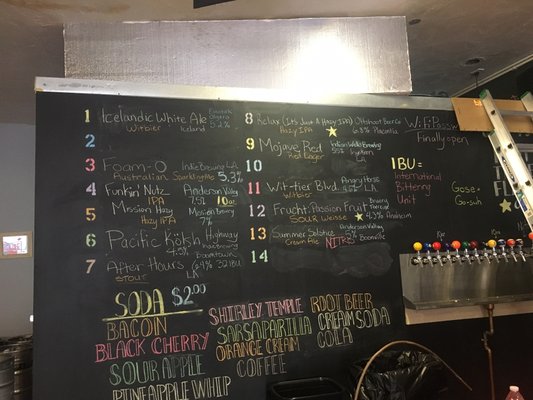 1 Icelandic White Ale
Witbier Iceland 5.2%
2
3 Foam-O Indie Brewing LA
Australian Sparkling Ale 5.3%
4 Funkin Nutz Anderson Valley
IPA 7.51 10oz
5 Mission Hazy Mission Brewery
Hazy IPA 7%
6 Pacific Kölsh Highway
4.5%
7 After Hours 6.4% 32 IBU
Stout LA
8 Relax (It's Just A Hazy IPA) Offshoot Beer Co
Hazy IPA 6.8% Placentia
9 Mojave Red Indian Wells Brewing
Red Lager
10
11 Wit-tier Blvd. Angry Horse
Witbier LA
12 Frucht: Passion Fruit
Sour Weisse 4.9% Anaheim
13 Summer Solstice Anderson Valley
Cream Ale NITRO 5% Boonville
14
WiFi Pass:
Finally open
IBU=
International
Bittering
Unit
Gose =
Go-suh
SODA $2.00
BACON
BLACK CHERRY
SOUR APPLE
PINEAPPLE WHIP
SHIRLEY TEMPLE
SARSAPARILIA
ORANGE CREAM
COFFEE
ROOT BEER
CREAM SODA
COLA